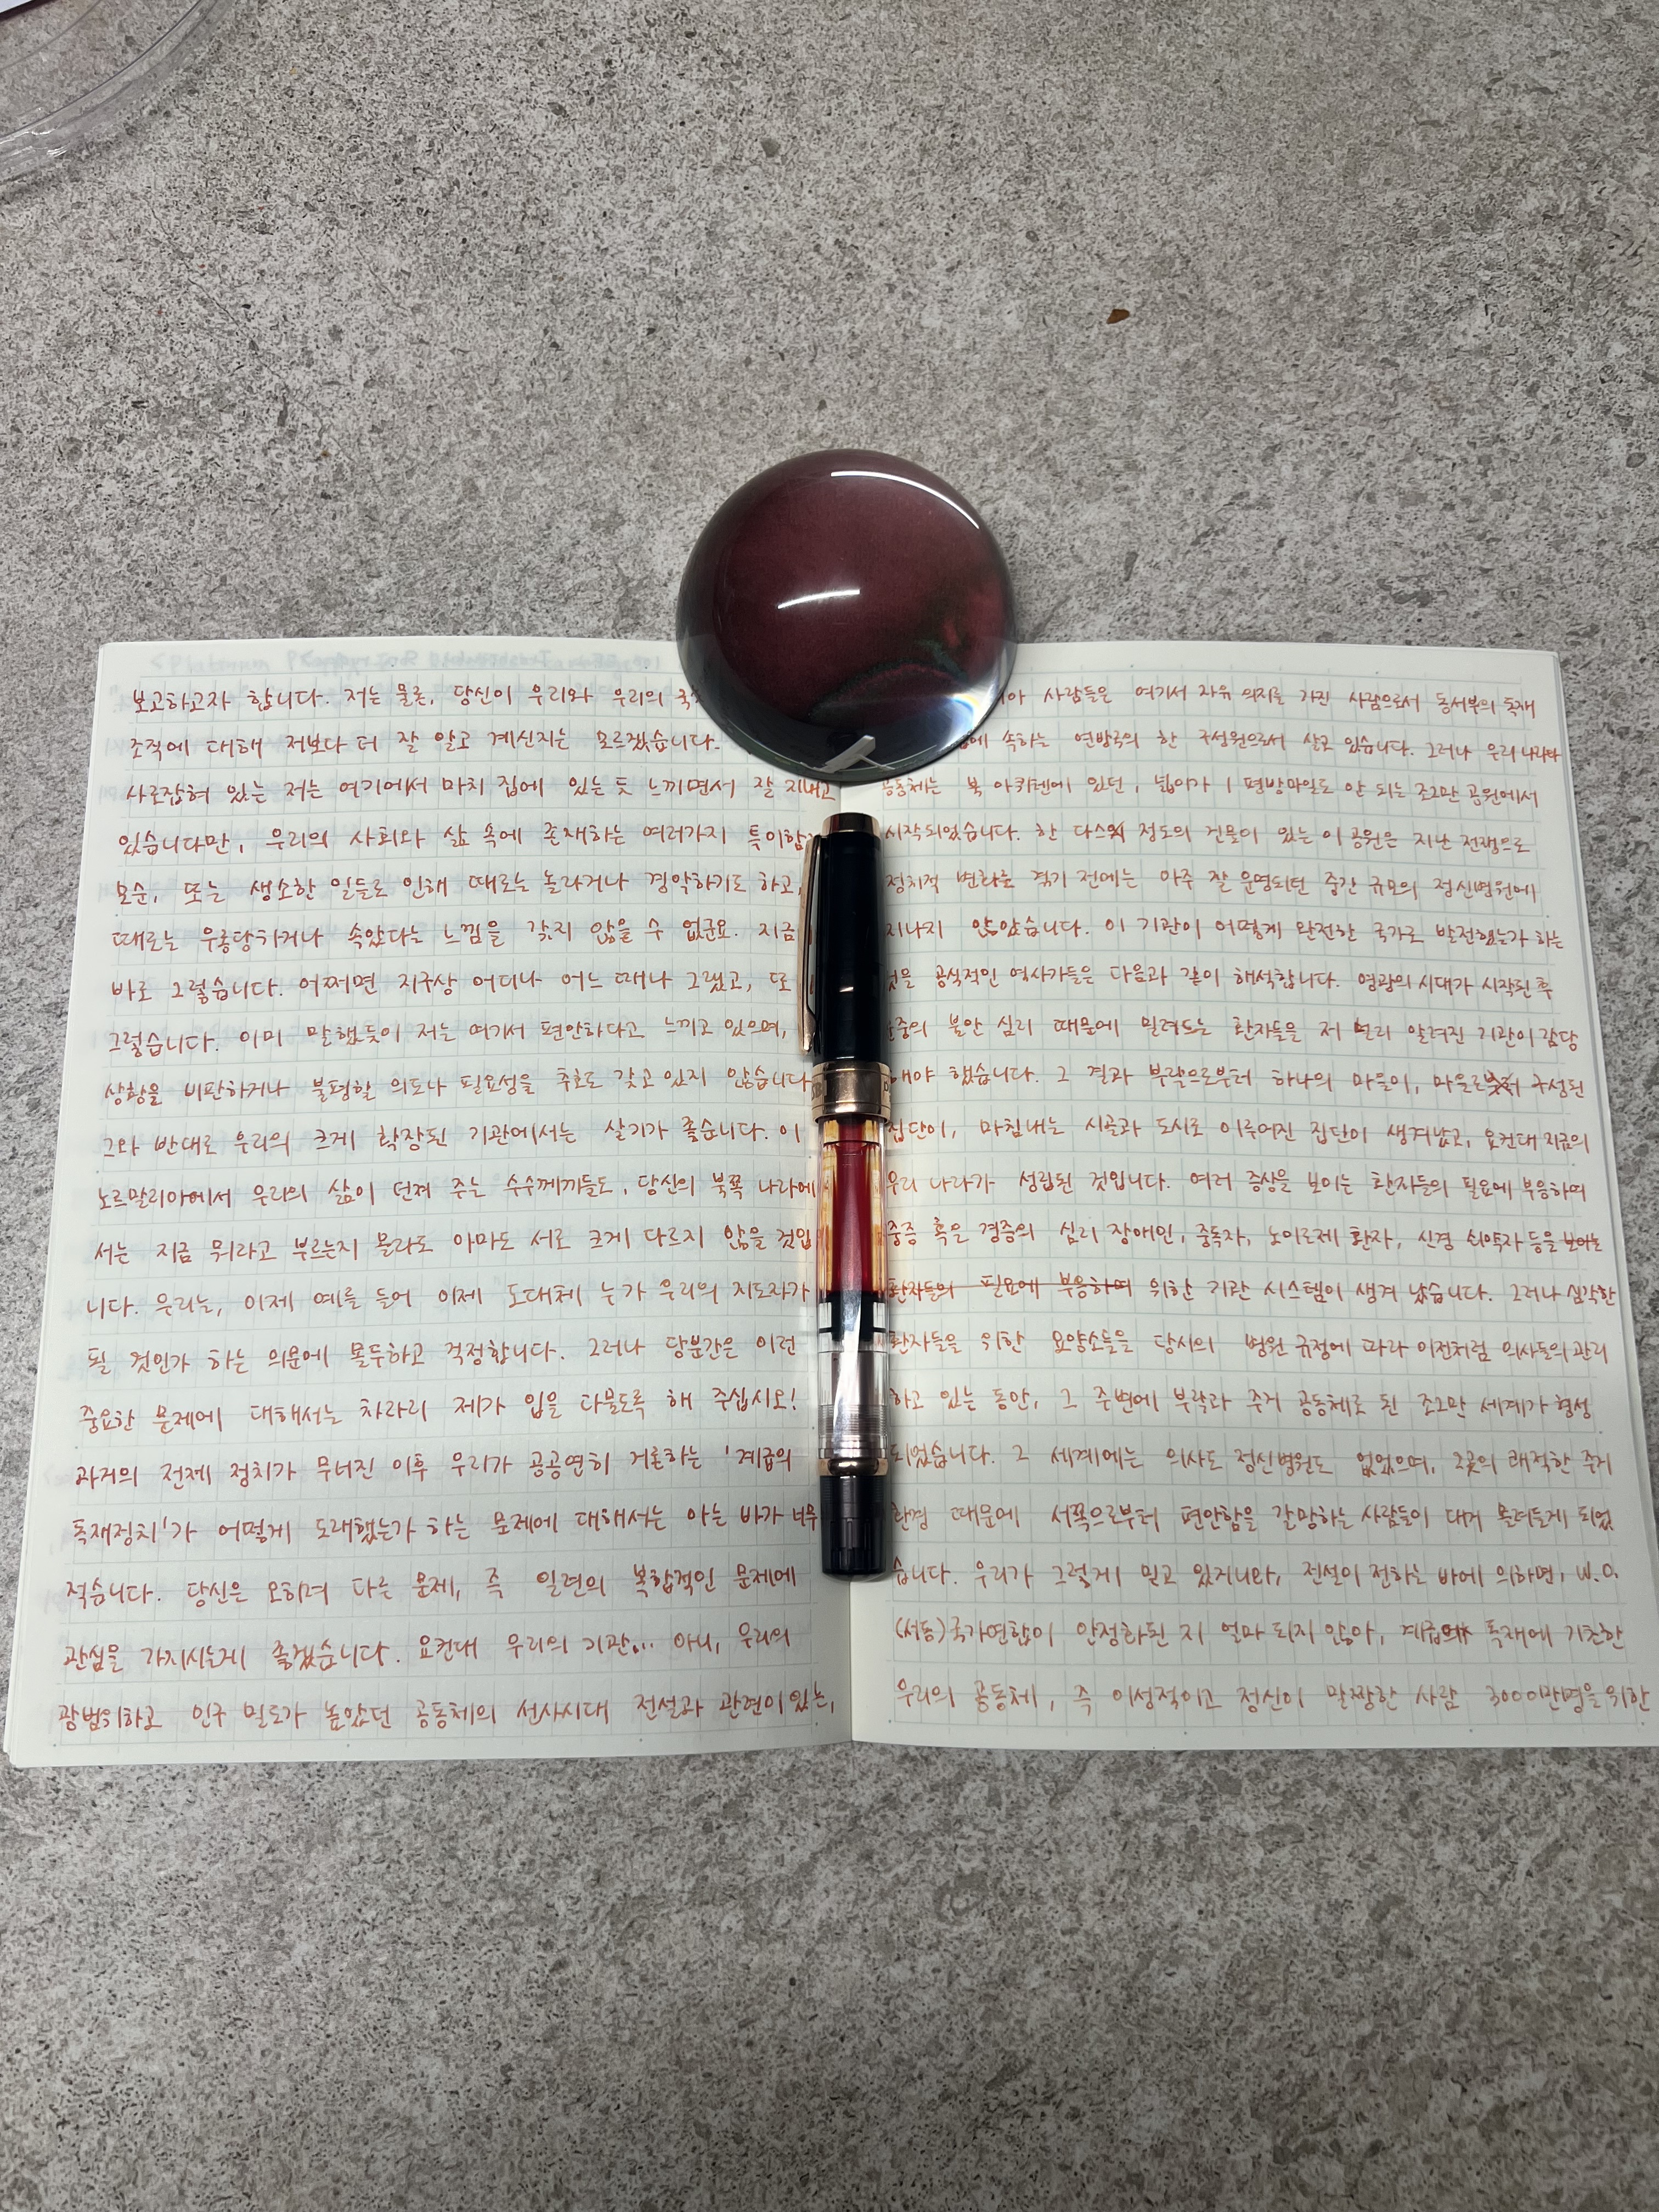 보고하고자 합니다. 저는 물론, 당신이 우리와 우리의
조직에 대해 저보다 더 잘 알고 계신지는 모르겠습니다.
사로잡혀 있는 저는 여기에서 마치 집에 있는 듯 느끼면서 잘 지내고
있습니다만, 우리의 사회와 삶 속에 존재하는 여러가지
모순, 또는 생소한 일들로 인해 때로는 놀라거나 경악하기도 하고,
때로는 우롱당하거나 속았다는 느낌을 갖지 않을 수 없군요. 지금
바로 그렇습니다. 어쩌면 지구상 어디나 어느 때나 그랬고, 또
그렇습니다. 이미 말했듯이 저는 여기서 편안하다고 느끼고 있으며,
상황을 비판하거나 불평할 의도나 필요성을 추호도 갖고 있지 않습니다
그와 반대로 우리의 크게 확장된 기관에서는 살기가 좋습니다. 이
노르말리아에서 우리의 삶이 던져 주는 수수께끼들도, 당신의 북쪽 나라에
서는 지금 뭐라고 부르는지 몰라도 아마도 서로 크게 다르지 않을 것입
니다. 우리는, 이제 예를 들어 이제 도대체 누가 우리의 지도자가
될 것인가 하는 의문에 몰두하고 걱정합니다. 그러나 당분간은 이런
중요한 문제에 대해서는 차라리 제가 입을 다물도록 해 주십시오!
과거의 전제 정치가 무너진 이후 우리가 공공연히 거론하는 '계급의
독재정치'가 어떻게 도래했는가 하는 문제에 대해서는 아는 바가 너무
적습니다. 당신은 오히려 다른 문제, 즉 일련의 복합적인 문제에
관심을 가지시는게 좋겠습니다. 요컨대 우리의 기관... 아니, 우리의
광범위하고 인구 밀도가 높았던 공동체의 선사시대 전설과 관련이 있는,
사람들은 여기서 자유 의지를 가진 사람으로서 동서부의 독재
속하는 연방국의 한 구성원으로서 살고 있습니다. 그러나 우리 나라와
공동체는 북 아키텐에 있던, 넓이가 1 평방마일도 안 되는 조그만 공원에서
시작되었습니다. 한 다스 정도의 건물이 있는 이 공원은 지난 전쟁으로
정치적 변화를 겪기 전에는 아주 잘 운영되던 중간 규모의 정신병원에
지나지 않았습니다. 이 기관이 어떻게 완전한 국가로 발전했는가 하는
것을 공식적인 역사가들은 다음과 같이 해석합니다. 영광의 시대가 시작된 후
불안 심리 때문에 밀려드는 환자들을 저 널리 알려진 기관이 감당
해야 했습니다. 그 결과 부락으로부터 하나의 마을이, 마을로부터 구성된
집단이, 마침내는 시골과 도시로 이루어진 집단이 생겨났고, 요컨대 지금의
우리 나라가 성립된 것입니다. 여러 증상을 보이는 환자들의 필요에 부응하여
중증 혹은 경증의 심리 장애인, 중독자, 노이로제 환자, 신경 쇠약자 등을 보이는
환자들의 필요에 부응하여 위한 기관 시스템이 생겨 났습니다. 그러나 심각한
환자들을 위한 요양소들을 당시의 병원 규정에 따라 이전처럼 의사들의 관리
하고 있는 동안, 그 주변에 부락과 주거 공동체로 된 조그만 세계가 형성
되었습니다. 그 세계에는 의사도 정신병원도 없었으며, 그곳의 쾌적한 주거
환경 때문에 서쪽으로부터 편안함을 갈망하는 사람들이 대거 몰려들게 되었
습니다. 우리가 그렇게 믿고 있거니와, 전설이 전하는 바에 의하면, W.O.
(서동)국가연합이 안정화된 지 얼마 되지 않아, 계급의 독재에 기초한
우리의 공동체, 즉 이성적이고 정신이 말짱한 사람 3000만명을 위한